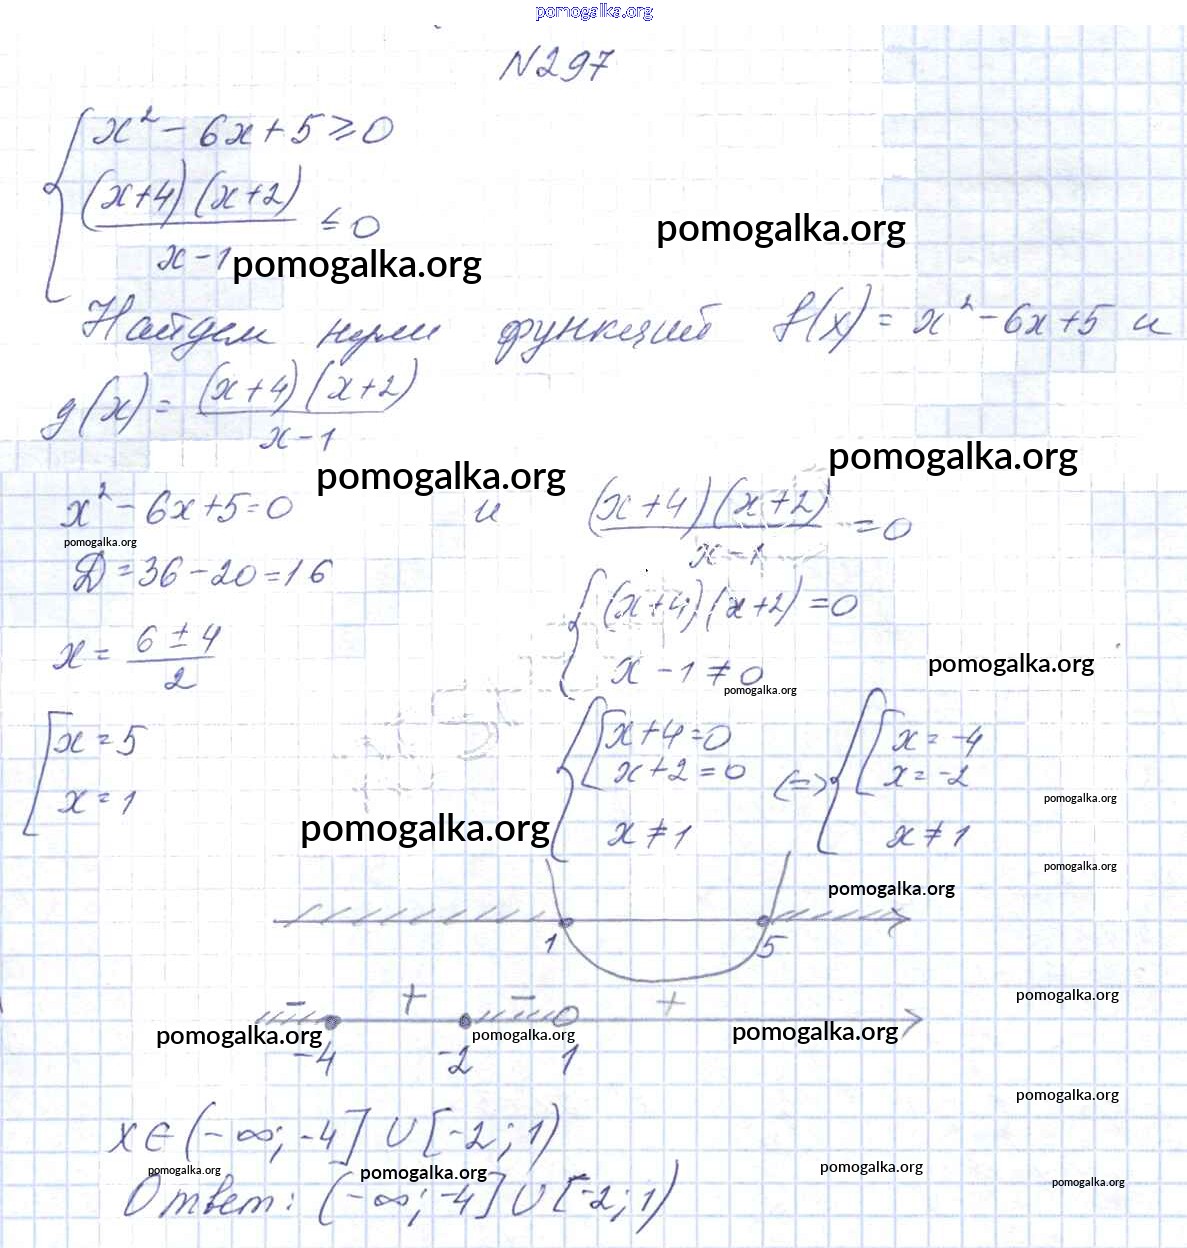 pomogalka.org
N297
{ x² - 6x + 5 ≥ 0
(x+4)(x+2)
≤ 0
x - 1 pomogalka.org
pomogalka.org
Найдем нули функций f(x) = x² - 6x + 5 и
g(x) = (x+4)(x+2)
x - 1
pomogalka.org
pomogalka.org
x² - 6x + 5 = 0 и (x+4)(x+2) = 0
x - 1
pomogalka.org
D = 36 - 20 = 16
{ (x+4)(x+2) = 0
x = 6 ± 4
2
x - 1 ≠ 0
pomogalka.org
pomogalka.org
[ x = 5
x = 1
{ [ x + 4 = 0
x + 2 = 0
x ≠ 1
(=) { [ x = -4
x = -2
x ≠ 1
pomogalka.org
pomogalka.org
pomogalka.org
pomogalka.org
1 5
- + - +
pomogalka.org
pomogalka.org pomogalka.org pomogalka.org
-4 -2 1
pomogalka.org
x ∈ (-∞; -4] ∪ [-2; 1)
pomogalka.org pomogalka.org pomogalka.org pomogalka.org
Ответ: (-∞; -4] ∪ [-2; 1)